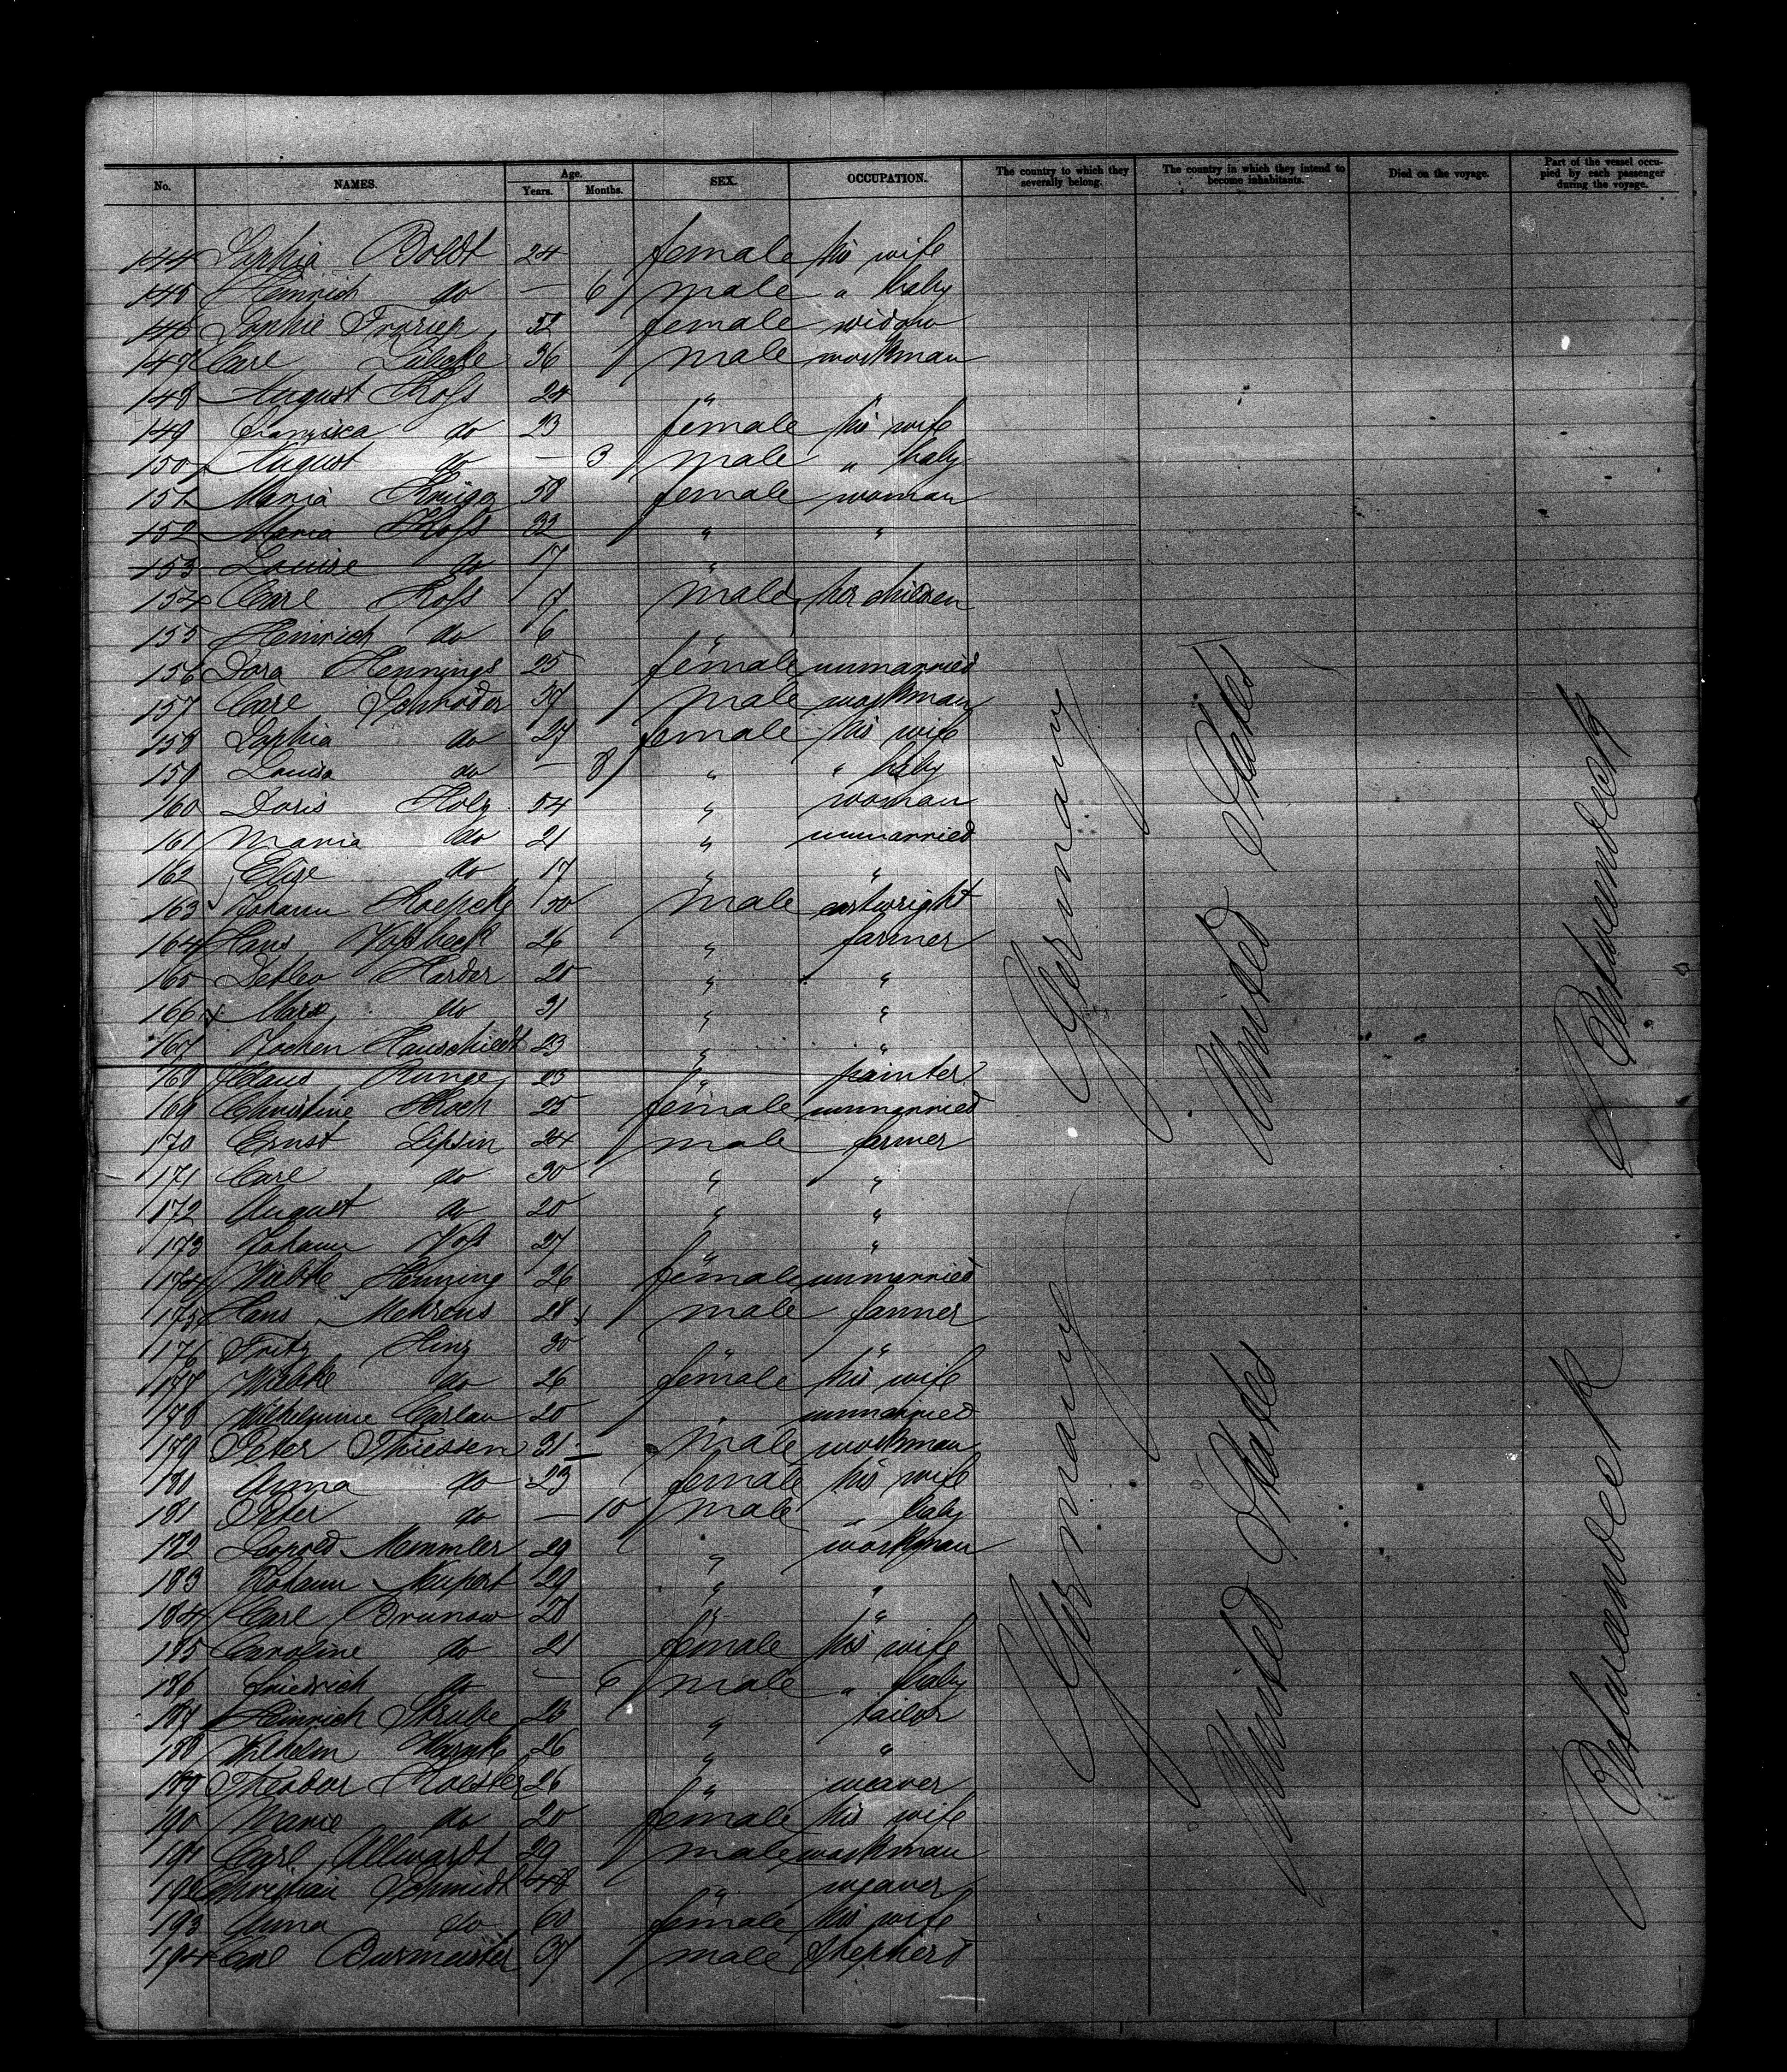 No. NAMES. Age. Years. Months. SEX. OCCUPATION. The country to which they severally belong. The country in which they intend to become inhabitants. Died on the voyage. Part of the vessel occupied by each passenger during the voyage.
144 Sophia Boldt 24 female his wife
145 Heinrich do — 6 male " baby
146 Sophie Froriep 52 female widow
147 Carl Lübcke 36 male workman
148 August Koss 24 "
149 Franziska do 23 female his wife
150 August do — 3 male " baby
151 Maria 58 female woman
152 Maria Koss 32 " "
153 Louise do 17 "
154 Carl Koss 7 male her children
155 Heinrich do 6 "
156 Dora Hennings 25 female unmarried
157 Carl Schroder 37 male workman
158 Sophia do 27 female his wife
159 Louisa do — 8 " " baby
160 Doris Holz 54 " woman
161 Maria do 21 " unmarried
162 Elise do 17 " "
163 Johann Koepcke 30 male cartwright
164 Hans Vossbeck 26 " farmer
165 Detlev Harder 20 " "
166 Marx do 31 " "
167 Jochen Hauschildt 23 " "
168 Claus Runge 23 " painter
169 Christine Koch 25 female unmarried
170 Ernst 24 male farmer
171 Carl do 30 " "
172 August do 20 " "
173 Johann Voss 27 " "
174 Wiebke Henning 26 female unmarried
175 Hans Mehrens 28 male farmer
176 Fritz Hinz 30 " "
177 Wiebke do 26 female his wife
178 Wilhelmine 20 unmarried
179 Peter Thiessen 31 male workman
180 Anna do 23 female his wife
181 Peter do — 10 male " baby
182 Leopold Memmler 29 " workman
183 Johann Neupert 29 " "
184 Carl Brunow 28 " "
185 Caroline do 21 female his wife
186 Friedrich do — 6 male " baby
187 Heinrich Strube 26 " tailor
188 Wilhelm 26 " "
189 Theodor Koester 26 " weaver
190 Marie do 20 female his wife
191 Carl Allwardt 29 male workman
192 Christian Schmidt 48 " weaver
193 Anna do 60 female his wife
194 Carl Burmeister 37 male Shepherd
Germany United States Betweendeck
Germany United States Betweendeck